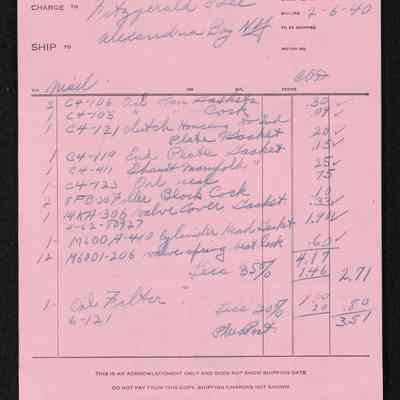 CHARGE TO Fitzgerald & Lee
Alexandria Bay N.Y.
BILLING 2-6-40
TO BE SHIPPED
SHIP TO
VIA Mail TERMS COD
2 C4-106 Oil Pan Gaskets .30 ✓
1 C4-105 " " Cork .09 ✓
1 C4-121 Clutch Housing to End
Plate Gasket .20 ✓
1 C4-119 End Plate Gasket .15 ✓
1 C4-411 Exhaust Manifold " .25 ✓
1- C4-723 Oil seal .75
2 Filler Block Cork .10
1 14KA-306 Valve Cover Gasket .33 ✓
5-62-80927
1- M600A-410 Cylinder Head Gasket 1.40 ✓
12 M6001-206 valve spring seat lock .60 ✓
4.17
Less 35% 1.46 2.71
1- Oil Filter 1.00
6-121 Less 20% 20 .80
Plus Post. 3.51
THIS IS AN ACKNOWLEDGMENT ONLY AND DOES NOT SHOW SHIPPING DATE
DO NOT PAY FROM THIS COPY. SHIPPING CHARGES NOT SHOWN